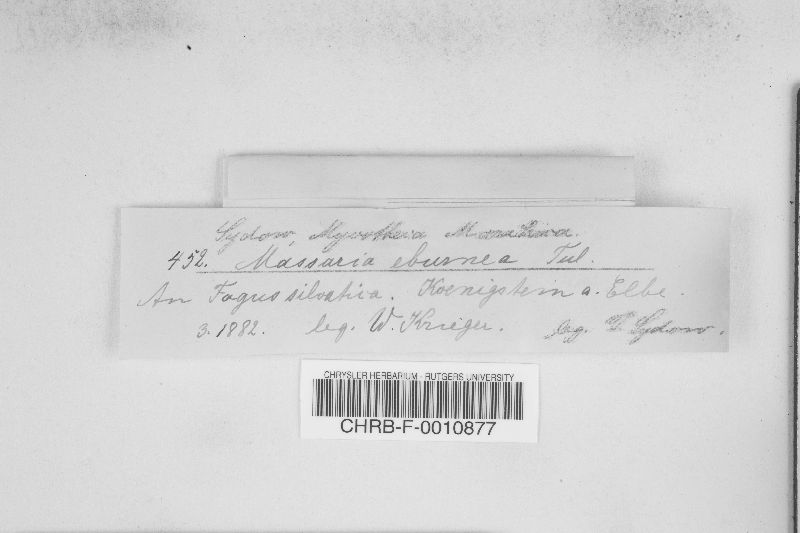 Sydow, Mycotheca Marchica.
452. Massaria eburnea Tul.
An Fagus silvatica. Koenigstein a. Elbe.
3. 1882. leg. W. Krieger. leg. P. Sydow.
CHRYSLER HERBARIUM - RUTGERS UNIVERSITY
CHRB-F-0010877